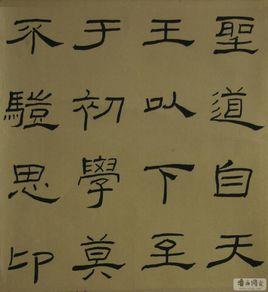 聖道自天
王以下至
于初學莫
不驥思卬